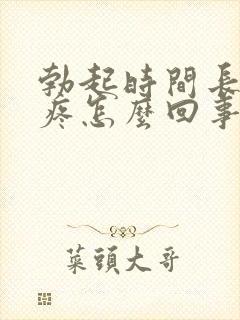 勃起時間長
疼怎麼回事
菜頭大哥